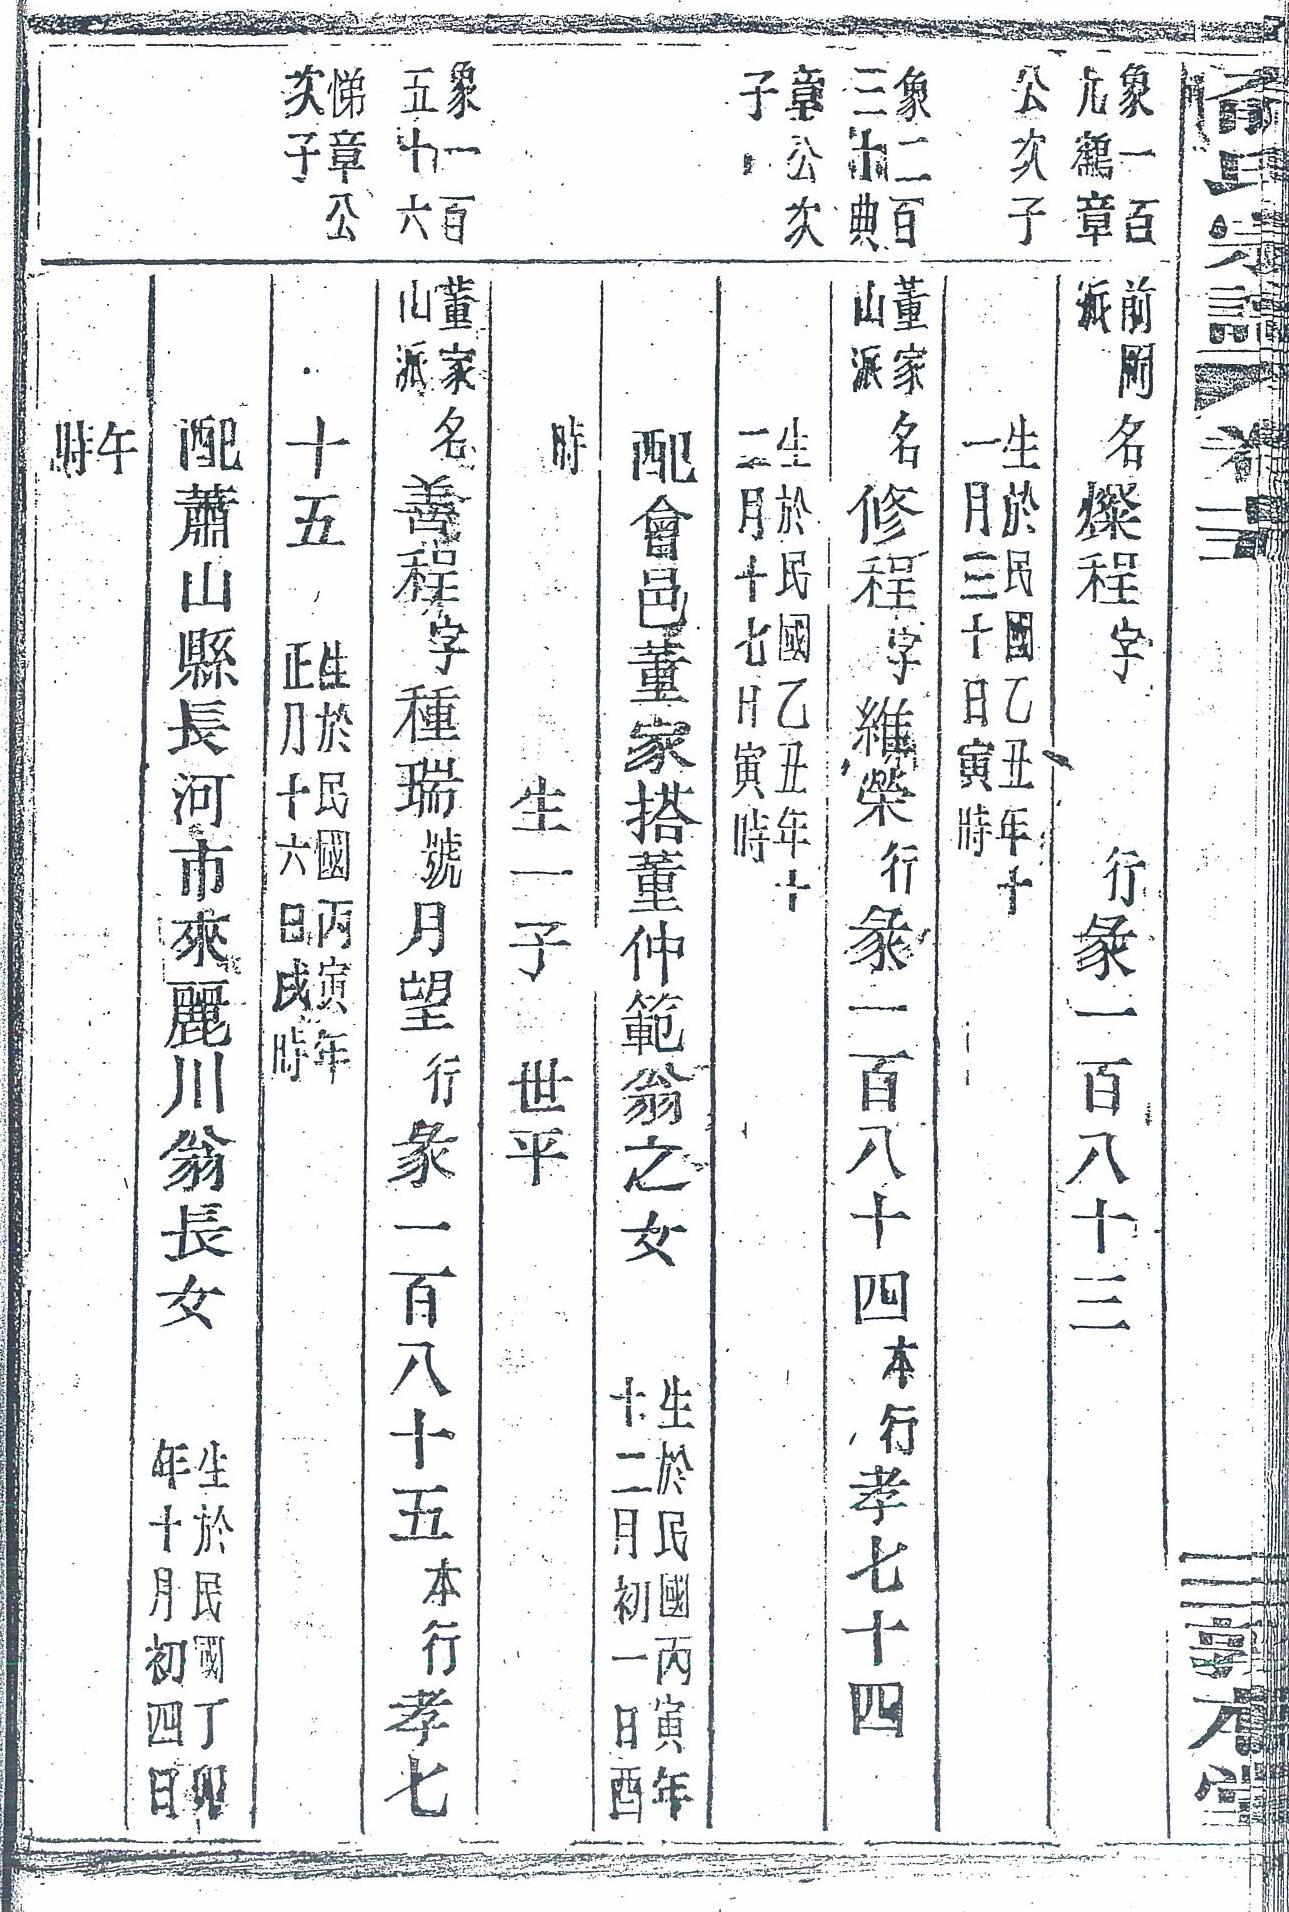 象一百
九鶴章
公次子
前岡
派
名燦程字
行彖一百八十三
生於民國乙丑年十
一月三十日寅時
象二百
三十典
章公次
子
董家
山派
名修程字維榮行彖一百八十四本行孝七十四
生於民國乙丑年十
二月十七日寅時
配會邑董家搭董仲範翁之女
生於民國丙寅年
十二月初一日酉
時
生一子 世平
象一百
五十六
悌章公
次子
董家
山派
名善程字種瑞號月望行彖一百八十五本行孝七
十五
生於民國丙寅年
正月十六日戌時
配蕭山縣長河市來麗川翁長女
生於民國丁卯
年十月初四日
午
時